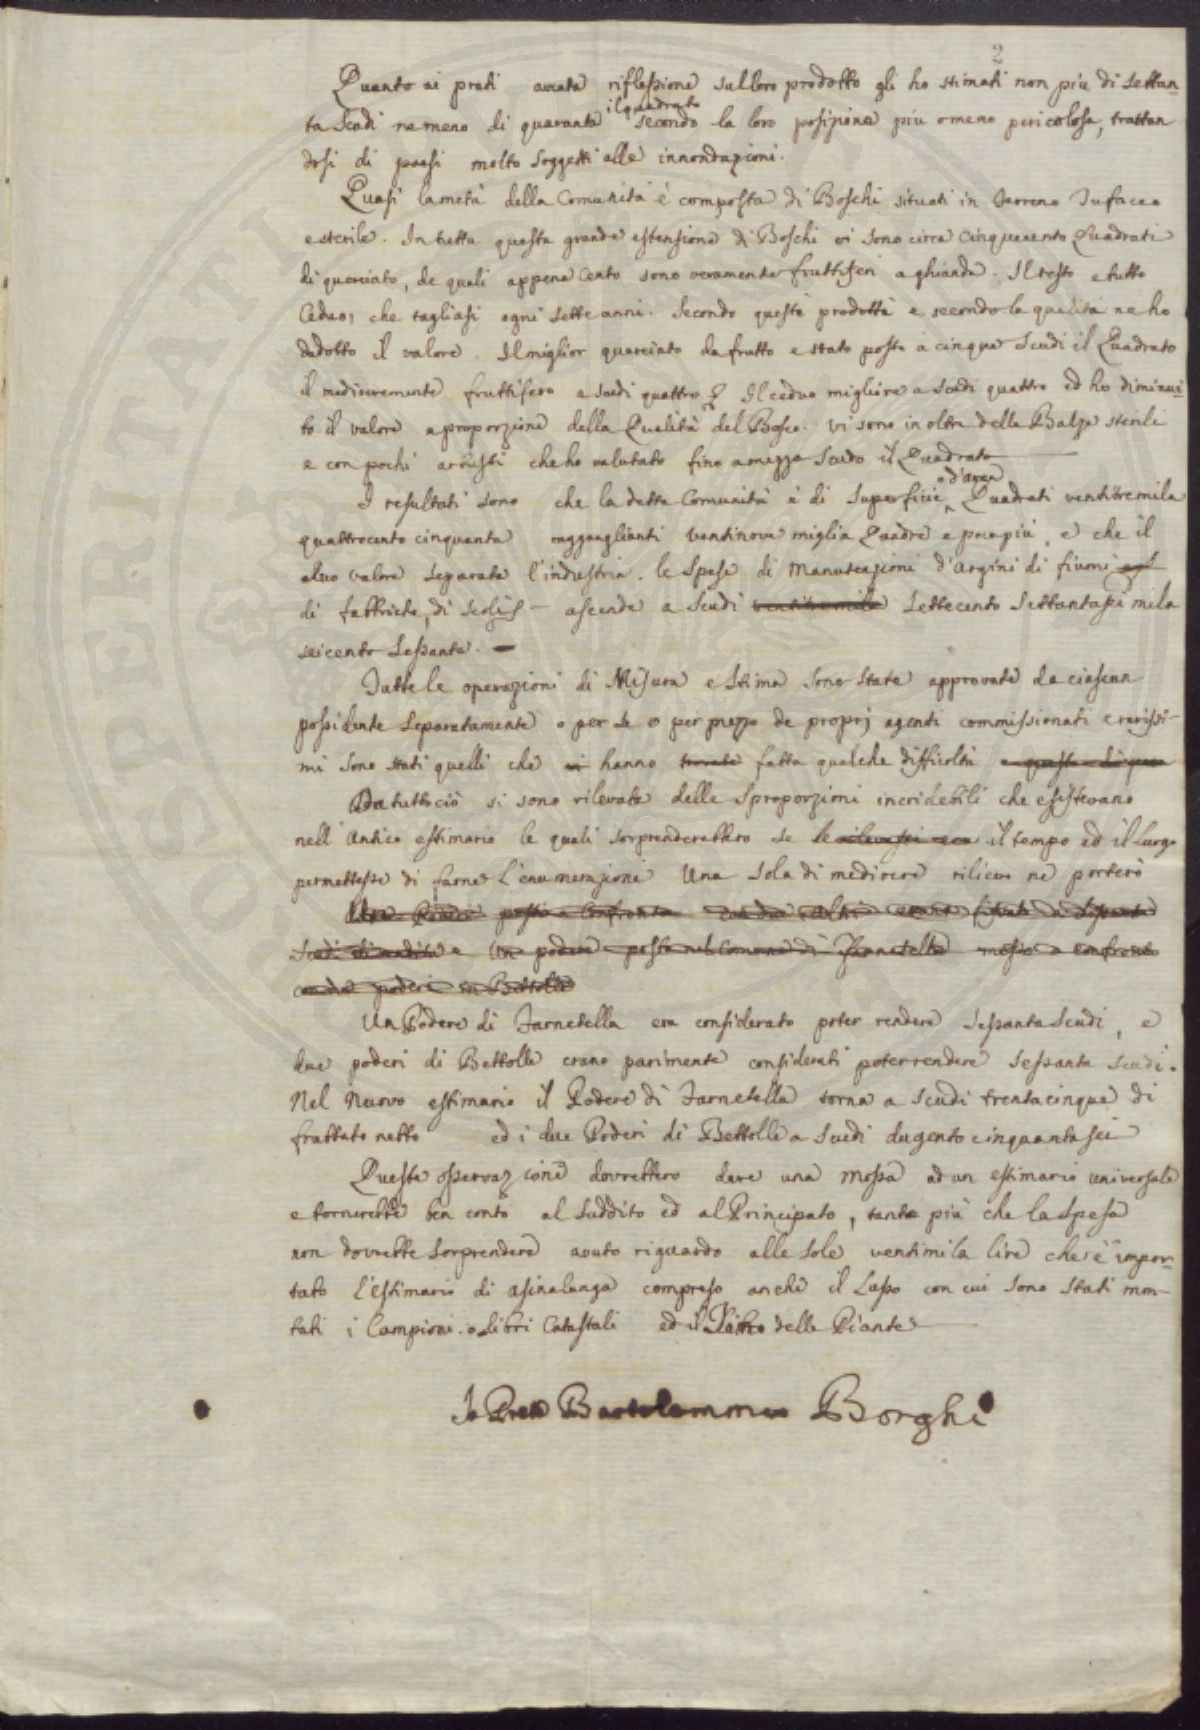 2
Quanto ai prati avuta riflessione sulloro prodotto gli ho stimati non più di settan-
ta Scudi ne meno di quaranta il quadrato secondo la loro posizione più o meno pericolosa, trattan
dosi di paesi molto soggetti alle innondazioni.
Quasi lametà della Comunità è composta di Boschi situati in terreno Tufaceo
e sterile. In tutta questa grande estensione di Boschi vi sono circa Cinquecento Quadrati
di querciato, de quali appena Cento sono veramente fruttiferi a ghianda. Il resto e tutto
Ceduo, che tagliasi ogni sette anni. Secondo questi prodotti e secondo la qualità ne ho
dedotto il valore. Il miglior querciato da frutto e stato posto a cinque Scudi il Quadrato
il mediocremente fruttifero a Scudi quattro Il ceduo migliore a Scudi quattro ed ho diminui-
to il valore a proporzione della Qualità del Bosco. vi sono inoltre delle Balze sterili
e con pochi arbusti che ho valutato fino a mezzo Scudo il Quadrato
I resultati sono che la detta Comunità è di Superficie o d'area Quadrati ventitremila
quattrocento cinquanta ragguaglianti ventinove miglia Quadre e poco più, e che il
suo valore separata l'industria. le Spese di Manutenzioni d'Argini di fiumi
di fabbriche, di Scoli — ascende a Scudi ventitremila Settecento Settantasei mila
seicento sessanta. —
Tutte le operazioni di Misura e Stima sono state approvate da ciascun
possidente separatamente o per se o per mezzo de proprj agenti commissionati e rarissi-
mi sono stati quelli che vi hanno trovato fatta qualche difficoltà e questa di poco
Da tuttociò si sono rilevate delle sproporzioni incridebili che esistevano
nell'Antico estimario le quali sorprenderebbero se il tempo ed il Luogo
permettesse di farne l'enumerazione Una sola di mediocre rilievo ne porterò
Un Podere posto a Confronto con due altri
Scudi di rendita e un podere posto nel Comune di Farnetella messo a confronto
con due poderi in Bettolle
Un Podere di Farnetella era considerato poter rendere Sessanta Scudi, e
due poderi di Bettolle erano parimente considerati poter rendere Sessanta Scudi.
Nel Nuovo estimario il Podere di Farnetella torna a Scudi trentacinque di
fruttato netto ed i due Poderi di Bettolle a Scudi dugento cinquantasei
Queste osservazioni dovrebbero dare una mossa ad un estimario universale
e tornerebbe ben conto al Suddito ed al Principato, tanto più che la spesa
non dovrebbe sorprendere avuto riguardo alle sole ventimila lire che è impor-
tato l'estimario di asinalunga compreso anche il Lusso con cui sono stati mon-
tati i Campioni. o Libri Catastali ed il Libro delle Piante
Io Prete Bartolommeo Borghi